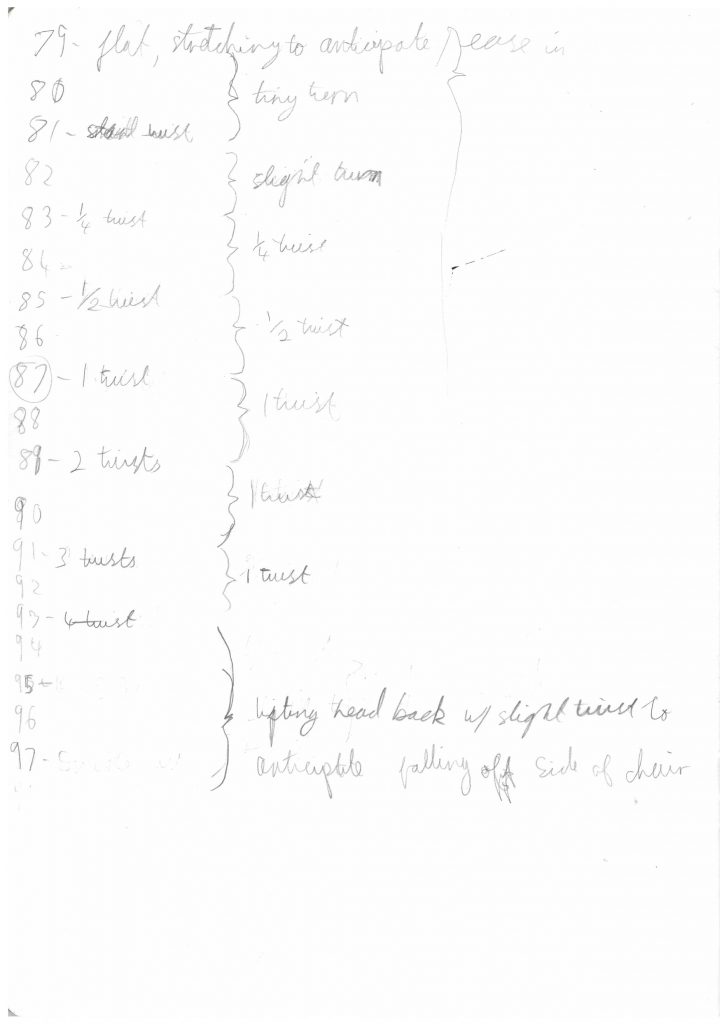 79 - flat, stretching to anticipate } ease in
80 tiny turn
81 - start twist
82 slight turn
83 - 1/4 twist
84 - 1/4 twist
85 - 1/2 twist
86 1/2 twist
87 - 1 twist
88 1 twist
89 - 2 twists
90 1 twist
91 - 3 twists
92 1 twist
93 - 4 twist
94
95 -
96 lifting head back w/ slight twist to
97 - anticipte falling off side of chair